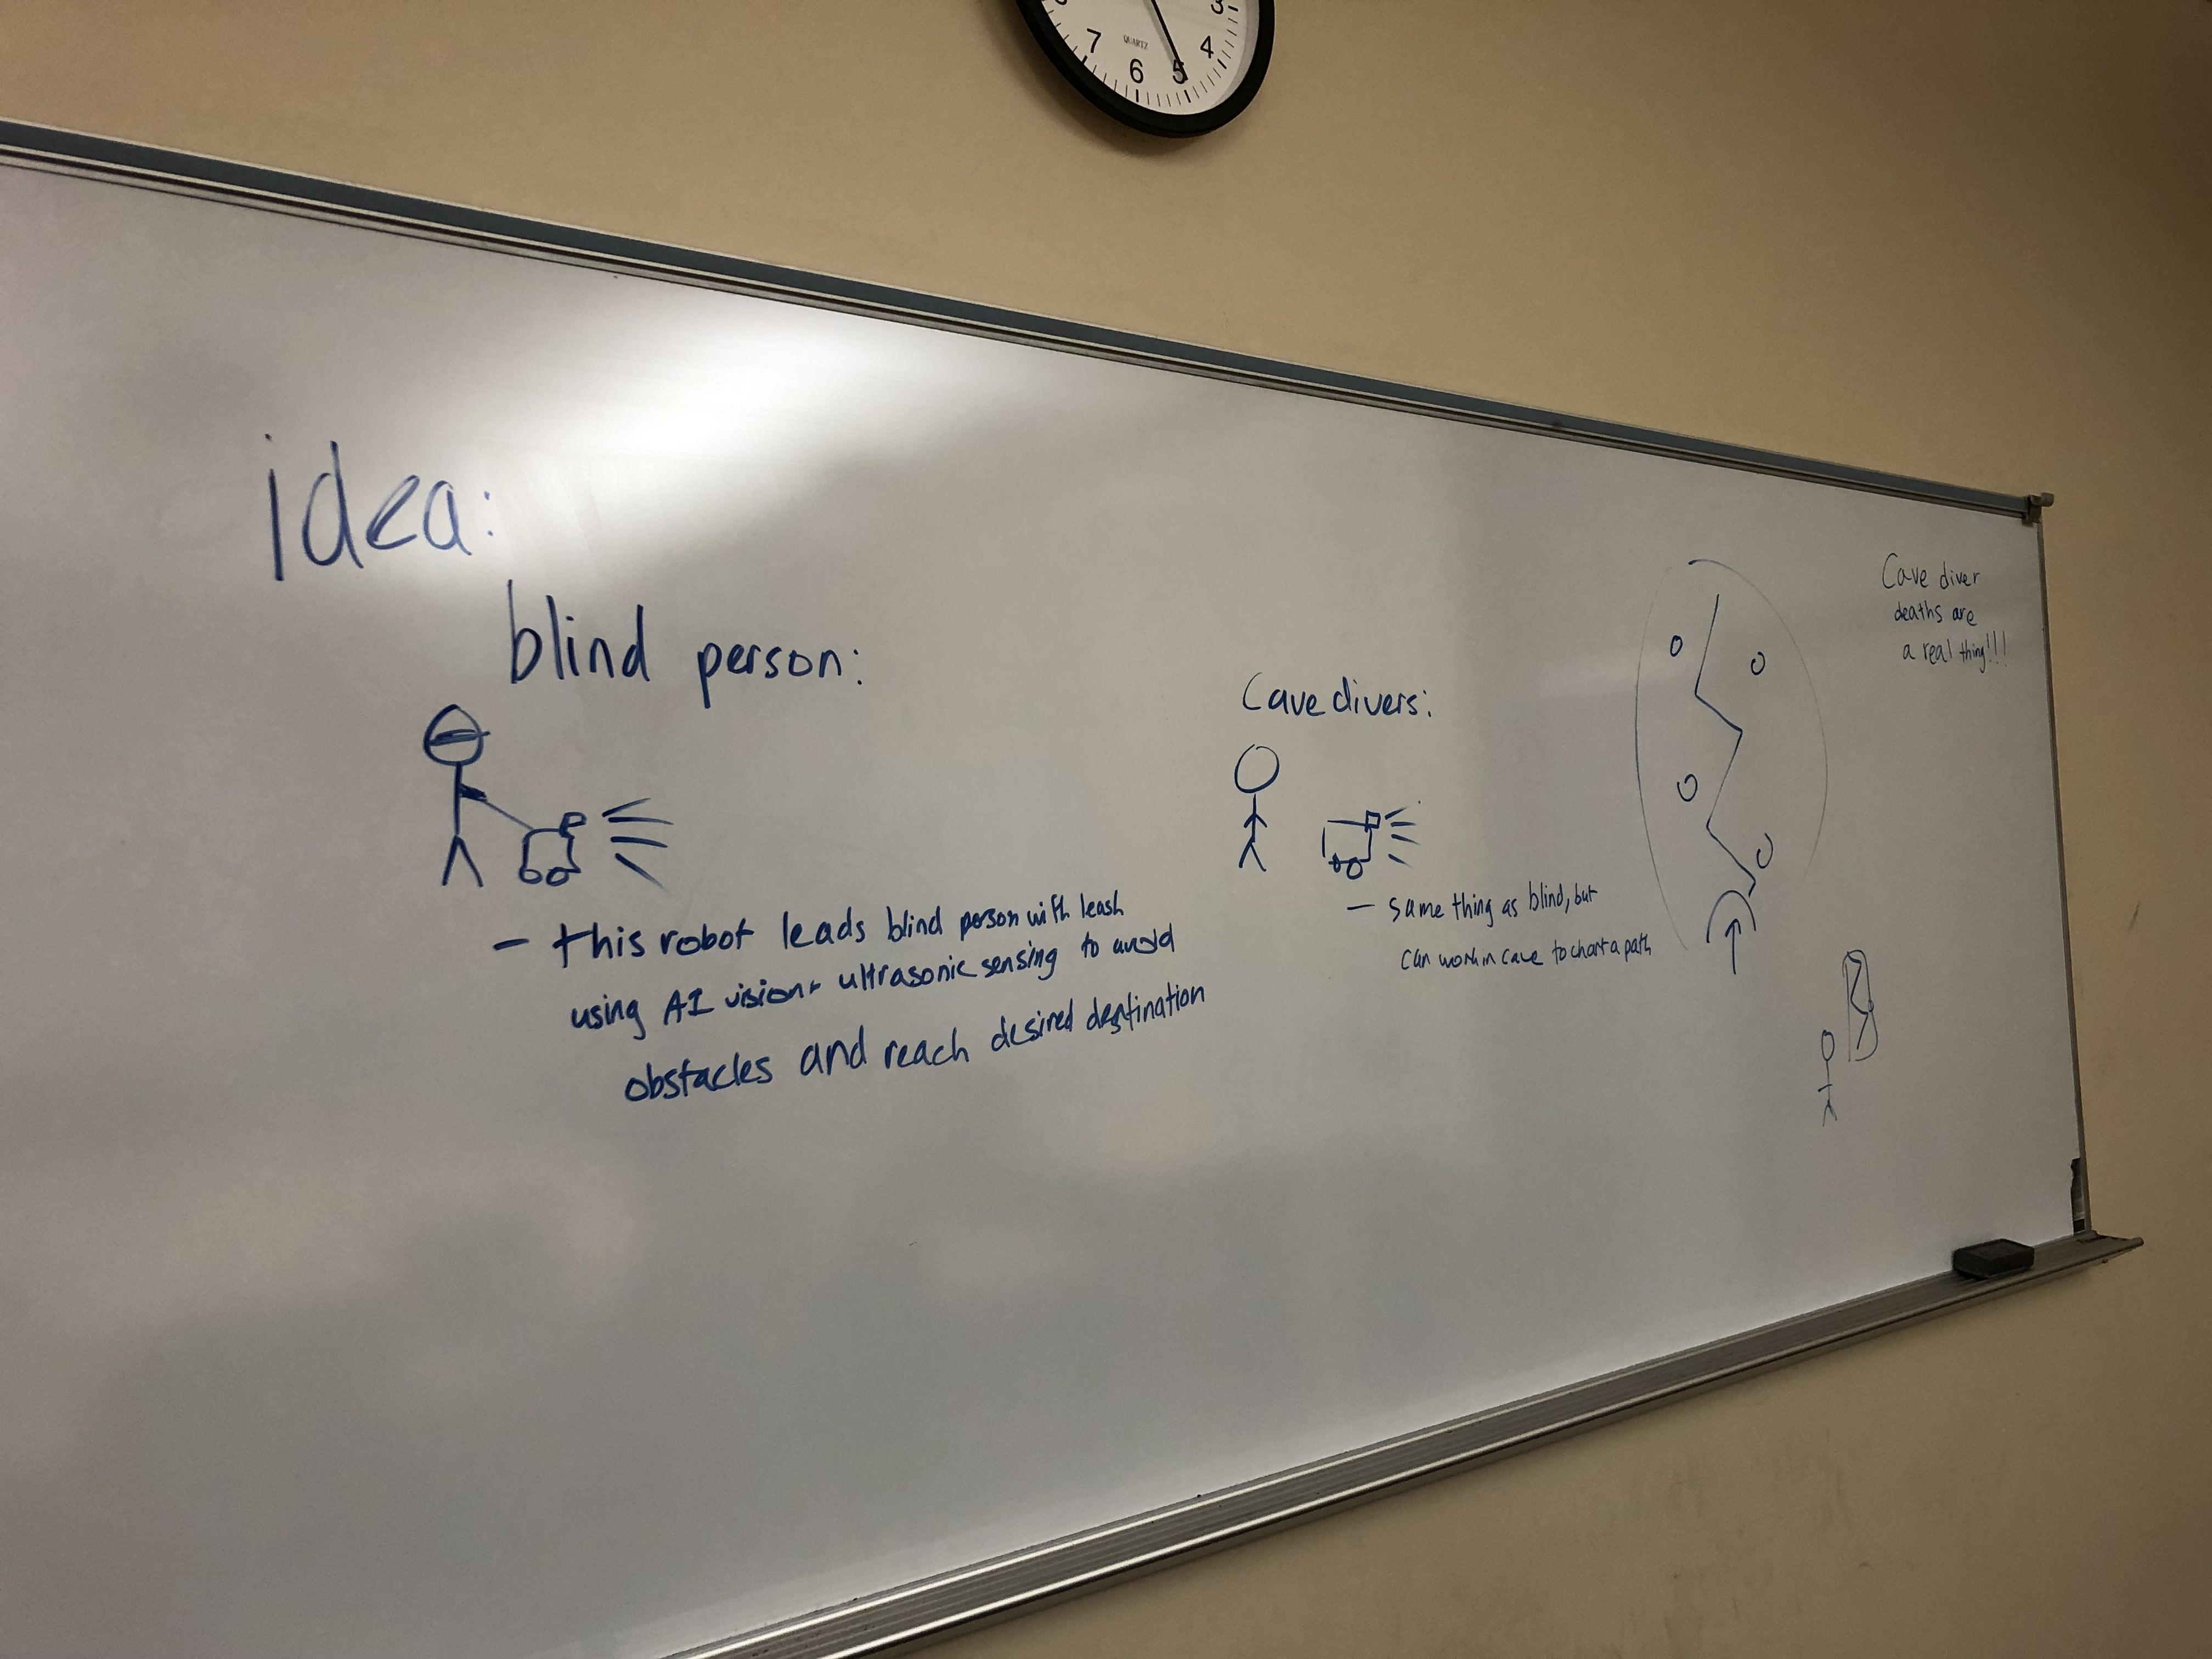 3
4
5
6
7
QUARTZ
idea:
blind person:
- this robot leads blind person with leash
using AI vision + ultrasonic sensing to avoid
obstacles and reach desired destination
Cave divers:
- same thing as blind, but
can work in cave to chart a path
Cave diver
deaths are
a real thing!!!